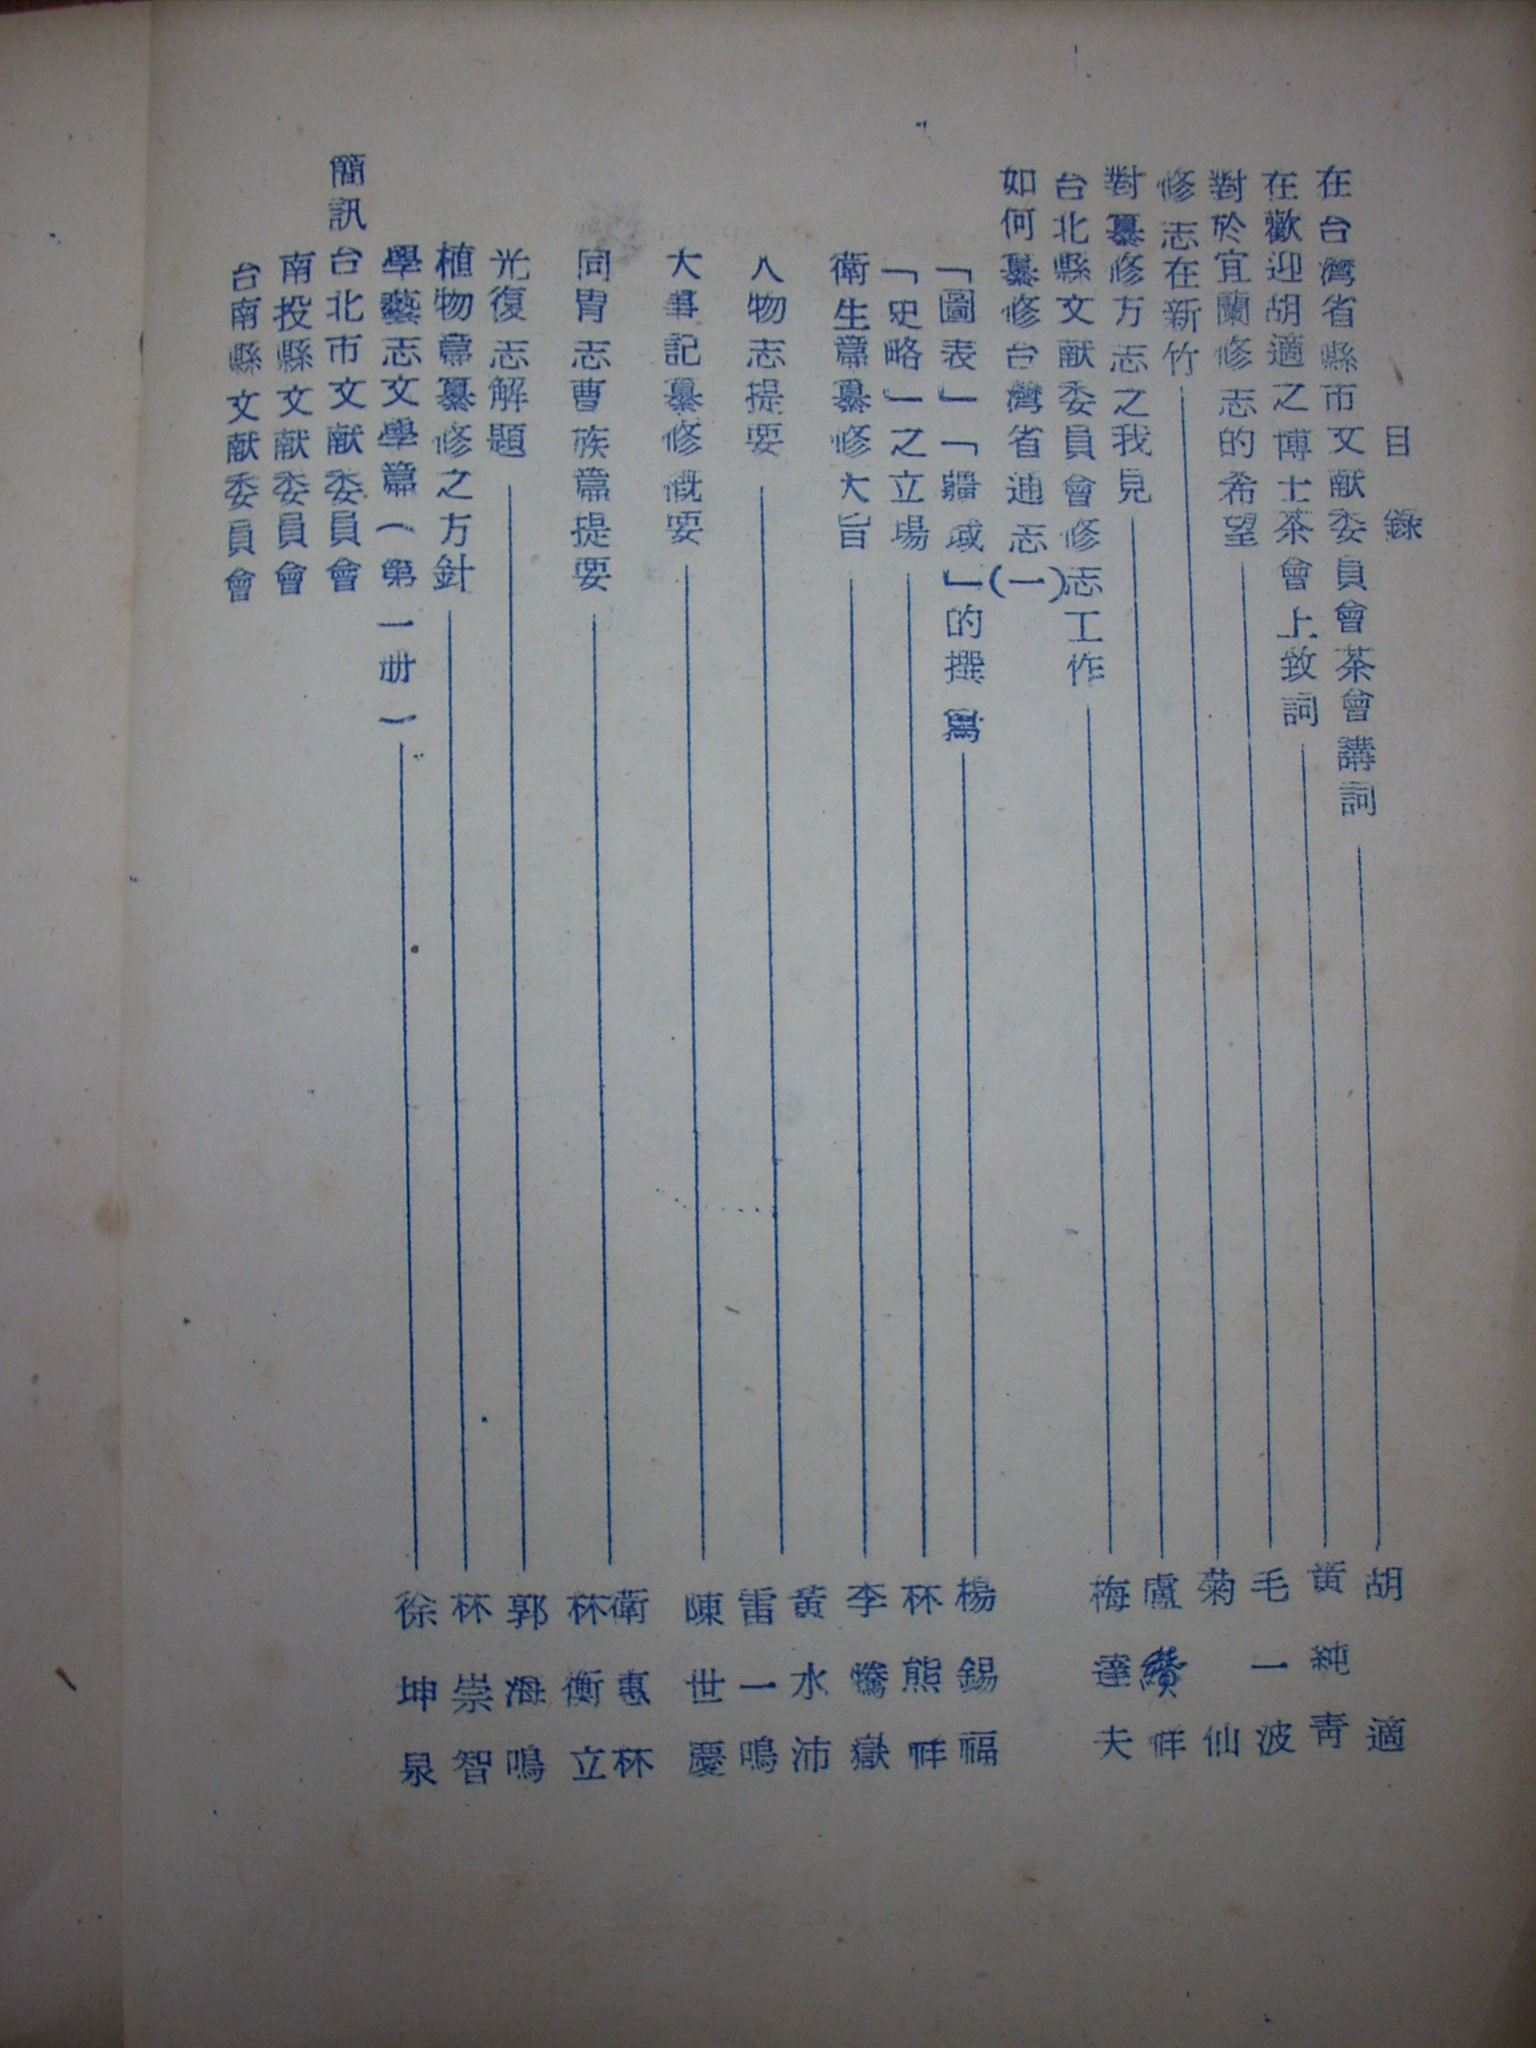 目錄
在台灣省縣市文献委員會茶會講詞 胡適
在歡迎胡適之博士茶會上致詞 黃純靑
對於宜蘭修志的希望 毛一波
修志在新竹 菊仙
對纂修方志之我見 盧纘祥
台北縣文献委員會修志工作 梅達夫
如何纂修台灣省通志(一)
「圖表」「疆域」的撰寫 楊錫福
「史略」之立場 林熊祥
衛生篇纂修大旨 李騰嶽
黃水沛
人物志提要 雷一鳴
大事記纂修概要 陳世慶
同胄志曹族篇提要 衛惠林
林衡立
光復志解題 郭海鳴
植物篇纂修之方針 林崇智
學藝志文學篇(第一册) 徐坤泉
簡訊 台北市文献委員會
南投縣文献委員會
台南縣文献委員會